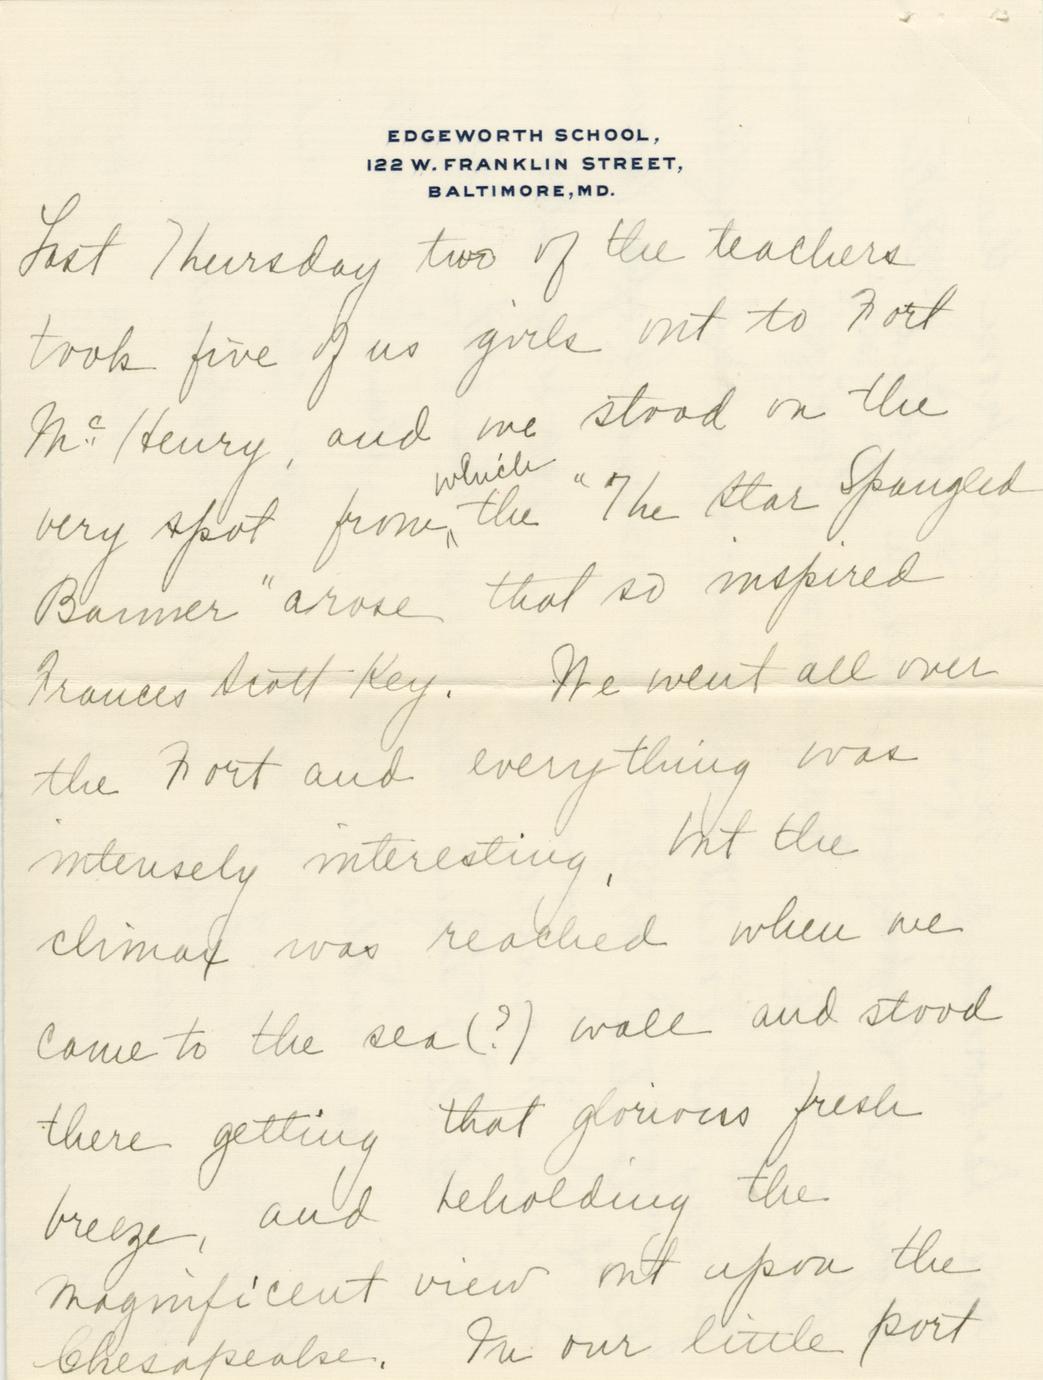 EDGEWORTH SCHOOL,
122 W. FRANKLIN STREET,
BALTIMORE, MD.
Last Thursday two of the teachers
took five of us girls out to Fort
Mc Henry, and we stood on the
which
very spot from the "The Star Spangled
Banner" arose that so inspired
Frances Scott Key. We went all over
the Fort and everything was
intensely interesting, but the
climax was reached when we
came to the sea (?) wall and stood
there getting that glorious fresh
breeze, and beholding the
magnificent view out upon the
Chesapeake. In our little port